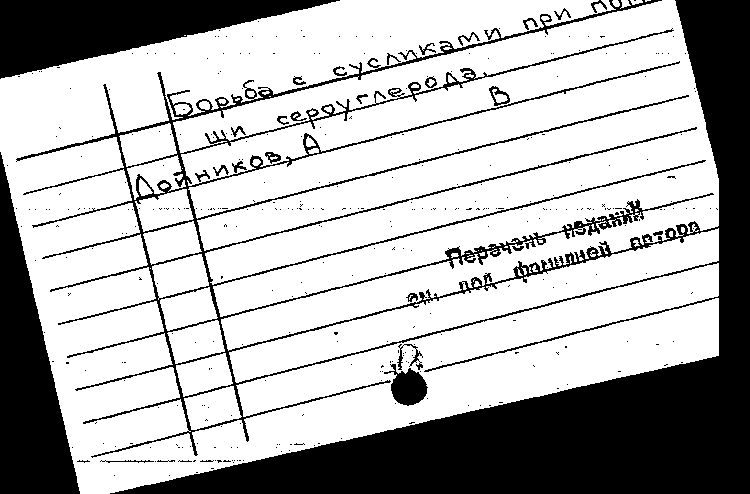 Борьба с сусликами при пом
щи сероуглерода.
В
Дойников, А
Перечень изданий
см. под фамилией автора